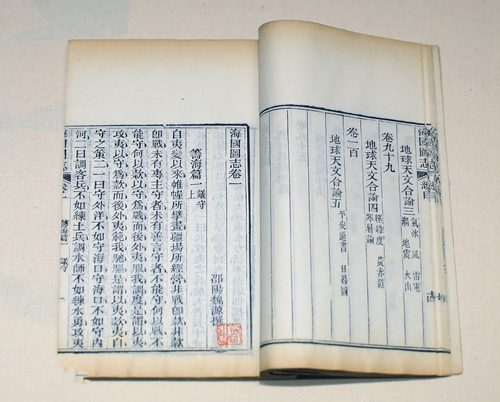 地球天文合論三
氣氷 風 雷電
潮 地震 火山
卷九十九
地球天文合論四
經緯度 黃赤道
寒暑論
卷一百
地球天文合論五
平安通書 日晷圖
海國圖志
總目
海國圖志卷一
邵陽魏源
籌海篇一 議守上
自夷變以來帷幄所擘畫疆場所經營非戰卽款非款
卽戰未有專主守者未有善言守者不能守何以戰不
能守何以款以守爲戰而後外夷服我調度是謂以夷
攻夷以守爲款而後外夷範我馳驅是謂以夷款夷自
守之策二一曰守外洋不如守海口守海口不如守內
河二曰調客兵不如練土兵調水師不如練水勇攻夷
籌海篇一 議守